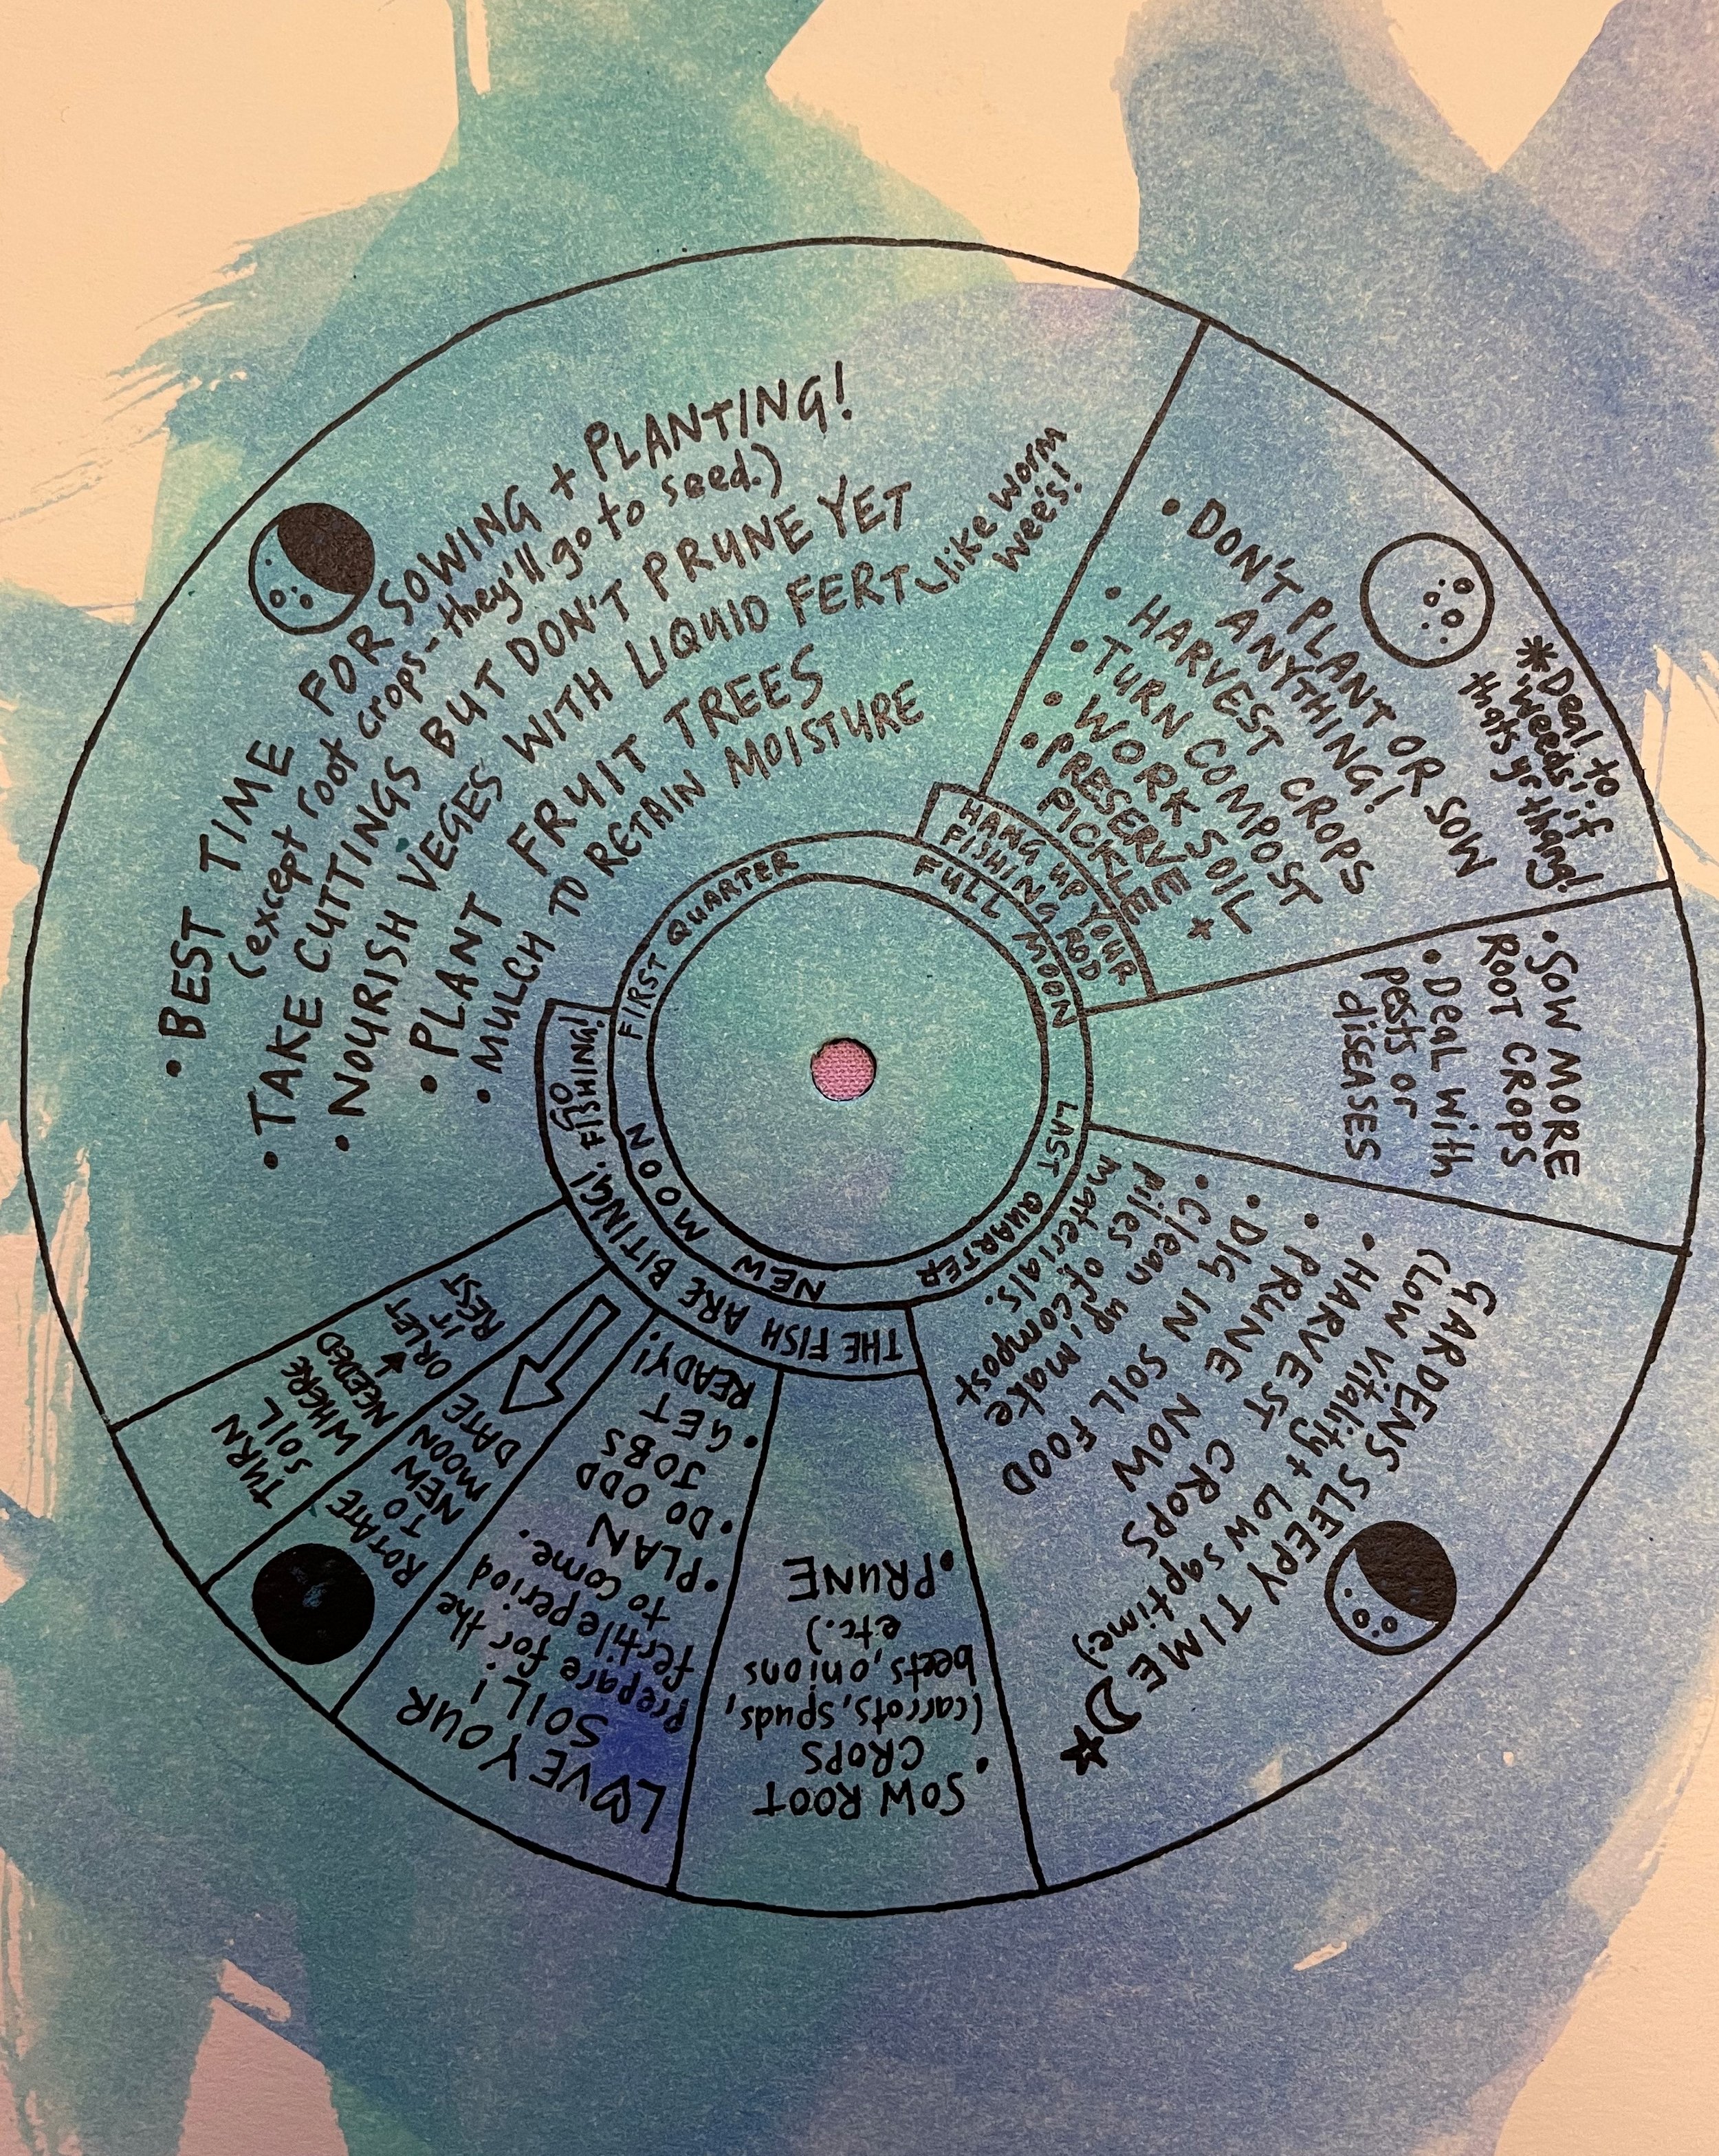 • BEST TIME FOR SOWING + PLANTING!
(except root crops - they'll go to seed.)
• TAKE CUTTINGS BUT DON'T PRUNE YET
• NOURISH VEGES WITH LIQUID FERT
like worm
wee's!
• PLANT FRUIT TREES
• MULCH TO RETAIN MOISTURE
• DON'T PLANT OR SOW
ANYTHING!
• HARVEST CROPS
• TURN COMPOST
• WORK SOIL
• PRESERVE +
PICKLE
* Deal to
'weeds' if
thats yr thang!
• SOW MORE
ROOT CROPS
• DEAL WITH
pests or
diseases
GARDENS SLEEPY TIME
(Low vitality + Low saptime)
• HARVEST CROPS
• PRUNE NOW
• DIG IN SOIL FOOD
• Clean up, make
piles of compost
materials.
• SOW ROOT
CROPS
(carrots, spuds,
beets, onions
etc.)
• PRUNE
LOVE YOUR
SOIL!
prepare for the
fertile period
to come.
• PLAN
• DO ODD
JOBS
• GET
READY!
ROTATE
TO
NEW
MOON
DATE
TURN
SOIL
WHERE
NEEDED
OR LET
IT
REST
HANG UP YOUR
FISHING ROD
THE FISH ARE BITING! GO
FISHING!
FIRST QUARTER
FULL MOON
LAST QUARTER
NEW MOON